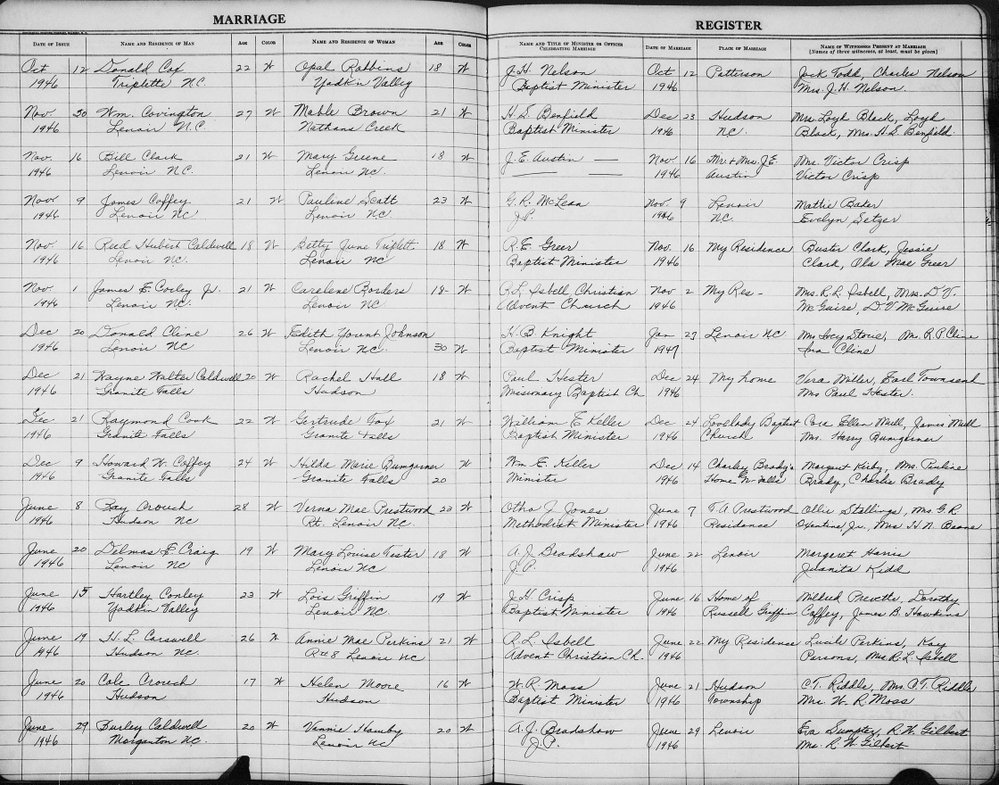 MARRIAGE
REGISTER
DATE OF ISSUE NAME AND RESIDENCE OF MAN AGE COLOR NAME AND RESIDENCE OF WOMAN AGE COLOR NAME AND TITLE OF MINISTER OR OFFICER CELEBRATING MARRIAGE DATE OF MARRIAGE PLACE OF MARRIAGE NAME OF WITNESSES PRESENT AT MARRIAGE
[Names of three witnesses, at least, must be given]
Oct 12 Donald Cox 22 W Opal Robbins 18 W J. H. Nelson Oct 12 Patterson Jack Todd, Charles Nelson
1946 Triplette N.C. Yadkin Valley Baptist Minister 1946 Mrs. J. H. Nelson.
Nov 30 Wm. Covington 27 W Mable Brown 21 W H. S. Benfield Dec 23 Hudson Mrs Loyh Black, Loyh
1946 Lenoir N.C Nathans Creek Baptist Minister 1946 NC. Black, Mrs. H. S. Benfield.
Nov. 16 Bill Clark 21 W Mary Greene 18 W J. E. Austin — Nov. 16 Mr + Mrs. J. E Mrs. Victor Crisp
1946 Lenoir NC. Lenoir NC. 1946 Austin Victor Crisp
Nov 9 James Coffey 21 W Paulene Scott 23 W G. R. McLean Nov 9 Lenoir Mattie Baker
1946 Lenoir NC Lenoir NC J.P. 1946 NC. Evelyn Setzer
Nov 16 Reed Hubert Caldwell 18 W Betty June Triplett 18 W R. E. Greer Nov. 16 My Residence Buster Clark, Jessie
1946 Lenoir NC. Lenoir NC Baptist Minister 1946 Clark, Ola Mae Greer
Nov 1 James E Corley Jr. 21 W Carolene Borders 18 W R. L. Isbell Christian Nov 2 My Res- Mrs. R. L. Isbell, Mrs. D. V.
1946 Lenoir NC. Lenoir NC Advent Church 1946 McGuire, D. V McGuire
Dec 20 Donald Cline 26 W Edith Yount Johnson H. B. Knight Jan 23 Lenoir NC Mrs Mrs. R. P. Cline
1946 Lenoir NC Lenoir NC. 30 W Baptist Minister 1947 Ina Cline
Dec 21 Wayne Walter Caldwell 20 W Rachel Hall 18 W Paul Hester Dec 24 My home Vera Miller, Earl Townsend
1946 Granite Falls Hudson Missionary Baptist Ch. 1946 Mrs Paul Hester.
Dec 21 Raymond Cook 22 W Gertrude Fox 21 W William E Keller Dec 24 Lovelady Baptist Cora Ellen Mull, James Mull
1946 Granite Falls Granite Falls Baptist Minister 1946 Church Mrs. Harry Bumgarner
Dec 9 Howard W. Coffey 24 W Hilda Marie Bumgarner W Wm E. Keller Dec 14 Charley Brady's Margaret Kirby, Mrs. Pauline
1946 Granite Falls Granite Falls 20 Minister 1946 Home Brady, Charlie Brady
June 8 Ray Crouch 28 W Verna Mae Prestwood 23 W Otho J Jones June 7 T. A. Prestwood Ollie Stallings, Mrs. G. R.
1946 Hudson NC Rt. Lenoir NC. Methodist Minister 1946 Residence Jr, Mrs H. N. Beane
June 20 Delmas E Craig 19 W Mary Louise Tester 18 W A. J. Bradshaw June 22 Lenoir Margaret Harris
1946 Lenoir NC Lenoir NC J.P. 1946 Juanita Kidd
June 15 Hartley Conley 23 W Lois Griffin 19 W J. H Crisp June 16 Home of Mildred Dorothy
1946 Yadkin Valley Lenoir NC. Baptist Minister 1946 Russell Griffin Coffey, James B. Hawkins
June 19 H. L. Carswell 26 W Annie Mae Perkins 21 W R. L. Isbell June 22 My Residence Lucile Perkins, Kay
1946 Hudson NC. Rt 8 Lenoir NC Advent Christian Ch. 1946 Persons, Mrs R. L. Isbell
June 20 Cole Crouch 17 W Helen Moore 16 W W. R Moss June 21 Hudson C. T. Riddle, Mrs. C. T. Riddle
1946 Hudson Hudson Baptist Minister 1946 Township Mr. W. R Moss
June 29 Burley Caldwell 20 W Vannie Hamby 20 W A. J. Bradshaw June 29 Lenoir Eva Sumpter, R. W. Gilbert
1946 Morganton NC. Lenoir NC J.P. 1946 Mrs. R. W Gilbert